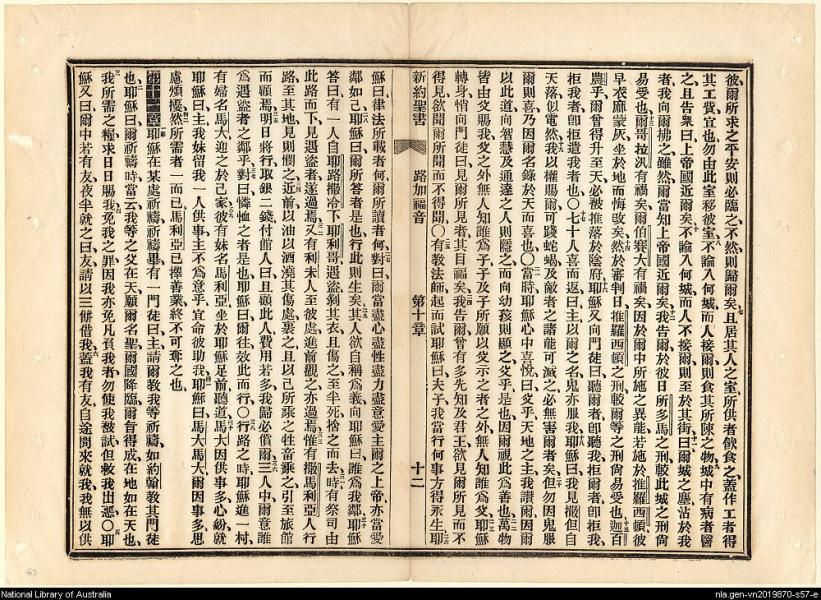 彼爾所求之平安則必臨之不然則歸爾矣且居其人之室所供者飲食之蓋作工者得
其工貲宜也勿由此室移彼室不論入何城而人接爾則食其所陳之物城中有病者醫
之且告衆曰上帝國近爾矣不論入何城而人不接爾則至於其街曰爾城之塵沾於我
者我向爾拂之雖然爾當知上帝國近爾矣我告爾於彼日所多馬之刑較此城之刑尙
易受也爾哥拉汛有禍矣爾伯賽大有禍矣因於爾中所施之異能若施於推羅西頓彼
早衣蔴蒙灰坐於地而悔改矣然於審判日推羅西頓之刑較爾等之刑尙易受也迦百
農乎爾曾得升至天必被推落於陰府耶穌又向門徒曰聽爾者卽聽我拒爾者卽拒我
拒我者卽拒遣我者也〇七十人喜而返曰主以爾之名鬼亦服我耶穌曰我見撒但自
天落似電然我以權賜爾可踐蛇蝎及敵者之諸能可滅之必無害爾者矣但勿因鬼服
爾則喜乃因爾名錄於天而喜也〇當時耶穌心中喜悅曰父乎天地之主我讚爾因爾
以此道向智慧及通達之人則隱之而向幼孩則顯之父乎是也因爾視此爲善也萬物
皆由父賜我父之外無人知誰爲子子及子所願以父示之者之外無人知誰爲父耶穌
轉身悄向門徒曰見爾所見者其目福矣我告爾曾有多先知及君王欲見爾所見而不
得見欲聞爾所聞而不得聞〇有教法師起而試耶穌曰夫子我當行何事方得永生耶
新約聖書 路加福音 第十章 十二
穌曰律法所載者何爾所讀者何對曰爾當盡心盡性盡力盡意愛主爾之上帝亦當愛
鄰如己耶穌曰爾所答者是也行此則生矣其人欲自稱爲義向耶穌曰誰爲我鄰耶穌
答曰有一人自耶路撒冷下耶利哥遇盜剝其衣且傷之至半死捨之而去時有祭司由
此路而下見遇盜者遂過焉又有利未人至彼處進前觀之亦過焉惟有撒馬利亞人行
路至其地見則憫之近前以油以酒澆其傷處裹之且以己所乘之牲畜乘之引至旅館
而顧焉明日將行取銀二錢付館人曰且顧此人費用若多我歸必償爾三人中爾意誰
爲遇盜者之鄰乎對曰憐恤之者是也耶穌曰爾往效此而行〇行路之時耶穌進一村
有婦名馬大迎之於己家彼有妹名馬利亞坐於耶穌足前聽道馬大因供事多心紛就
耶穌曰主我妹留我一人供事主不爲意乎宜命彼助我耶穌曰馬大馬大爾因事多思
慮煩擾然所需者一而已馬利亞已擇善業終不可奪之也
第十一章耶穌在某處祈禱祈禱畢有一門徒曰主請爾教我等祈禱如約翰教其門徒
也耶穌曰爾祈禱時當云我等之父在天願爾名聖爾國降臨爾旨得成在地如在天也
我所需之糧求日日賜我免我之罪因我亦免凡負我者勿使我被試但救我出惡〇耶
穌又曰爾中若有友夜半就之曰友請以三餠借我蓋我有友自途間來就我我無以供
National Library of Australia
nla.gen-vn2019870-s57-e